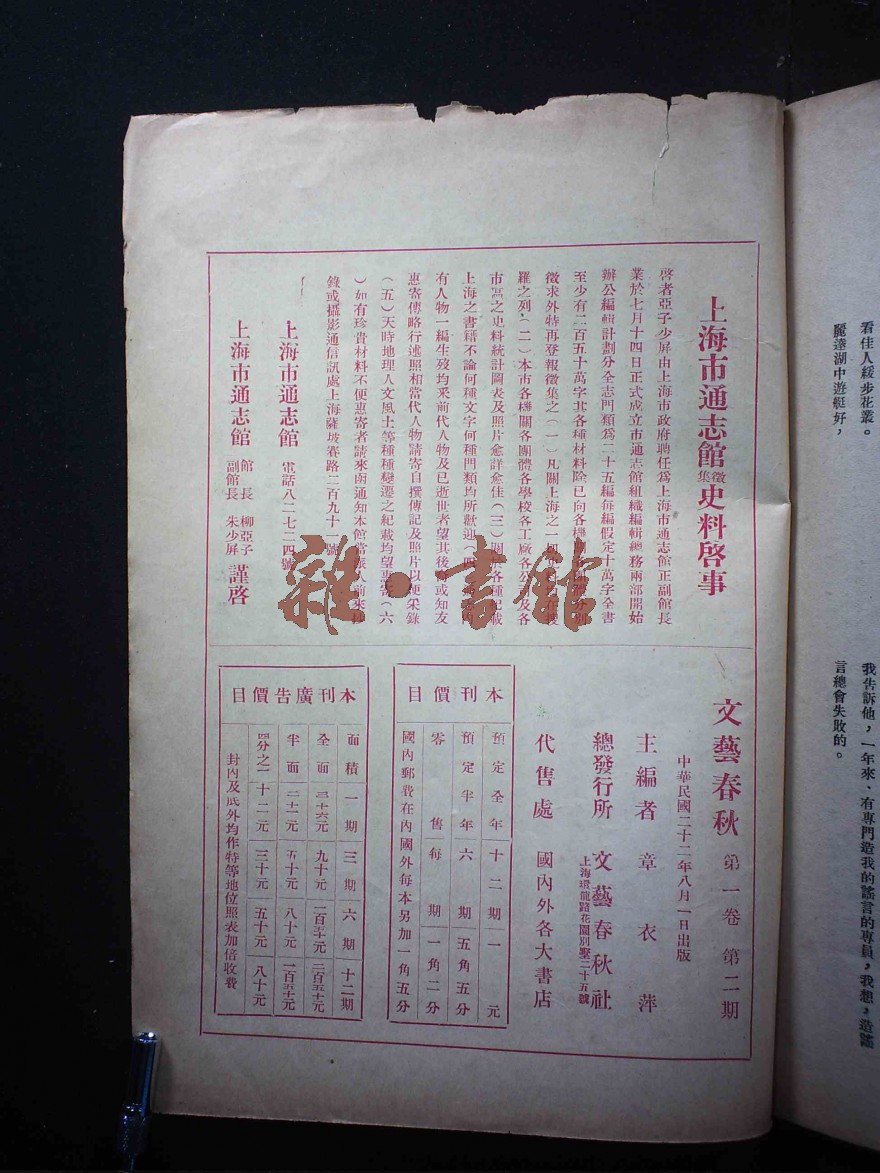 看佳人緩步花叢。
麗達湖中遊艇好，
我告訴他，一年來、有專門造我的謠言的專員，我想，造謠
言總會失敗的。
上海市通志館徵集史料啓事
啓者亞子少屏由上海市政府聘任爲上海市通志館正副館長
業於七月十四日正式成立市通志館組織編輯總務兩部開始
辦公編輯計劃分全志門類爲二十五編每編假定十萬字全書
至少有二百五十萬字其各種材料除已向各機關各團體分別
徵求外特再登報徵集之（一）凡關上海之一
羅之列（二）本市各機關各團體各學校各工廠各公司及各
市區之史料統計圖表及照片愈詳愈佳（三）關於各種記載
上海之書籍不論何種文字何種門類均所歡迎（四）
有人物一編生歿均采前代人物及已逝世者望其後裔或知友
惠寄傳略行述照相當代人物請寄自撰傳記及照片以便采錄
（五）天時地理人文風土等種種變遷之紀載均望惠寄（六
）如有珍貴材料不便惠寄者請來函通知本館當派人前來抄
錄或攝影通信訊處上海薩坡賽路二百九十一號
上海市通志館 電話八二七二四號
上海市通志館 館長 柳亞子 副館長 朱少屏 謹啓
雜·書館
文藝春秋 第一卷 第二期
中華民國二十二年八月一日出版
主編者 章衣萍
總發行所 文藝春秋社
上海環龍路花園別墅二十五號
代售處 國內外各大書店
本刊價目
預定全年十二期一元
預定半年六期五角五分
零售每期一角二分
國內郵費在內國外每本另加一角五分
本刊廣告價目
面積 一期 三期 六期 十二期
全面 三十六元 九十元 一百五十元 二百五十元
半面 二十二元 五十元 八十元 一百五十元
四分之一 十二元 三十元 五十元 八十元
封內及底外均作特等地位照表加倍收費